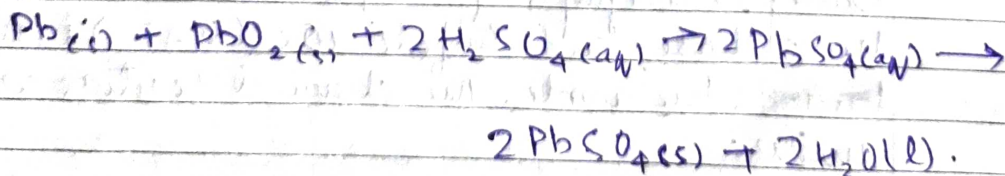 Pb(s) + PbO₂(s) + 2H₂SO₄(aq) → 2PbSO₄(aq) →
2PbSO₄(s) + 2H₂O(l).